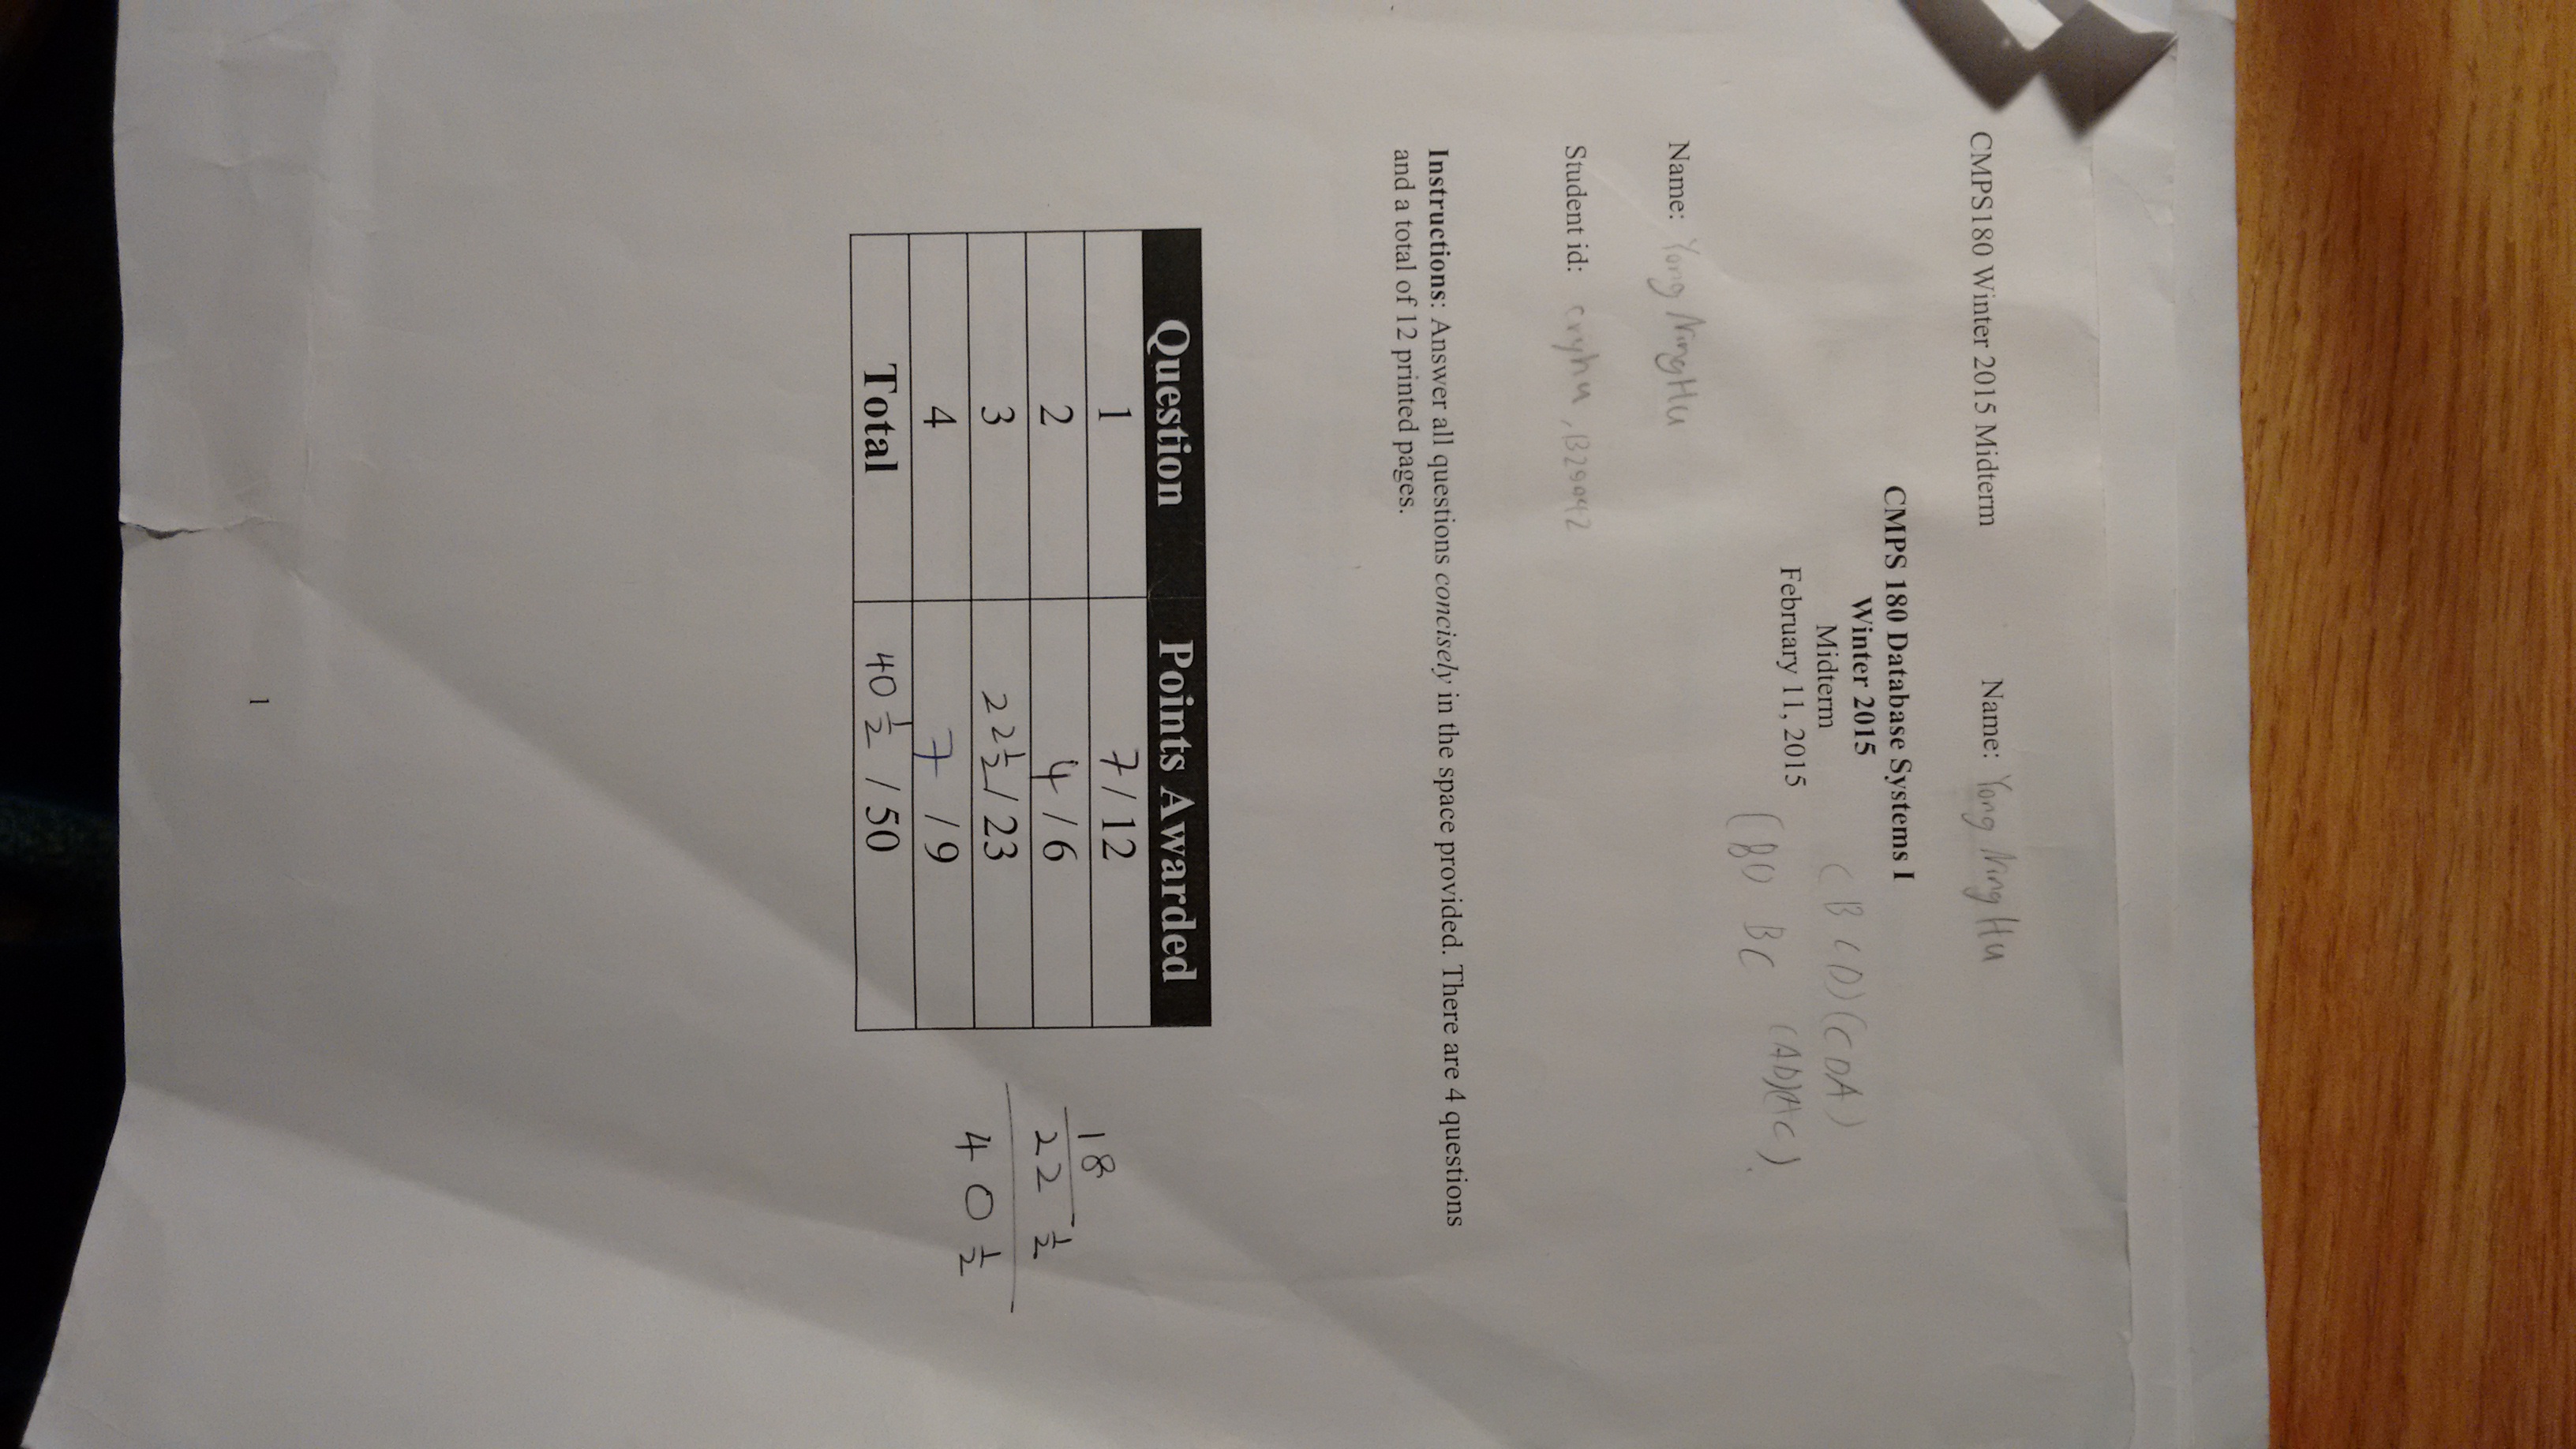 CMPS180 Winter 2015 Midterm Name: Yong Ning Hu
CMPS 180 Database Systems I
Winter 2015
Midterm
February 11, 2015
(B C D) (C D A)
(BD BC (AD)(AC).
Name: Yong Ning Hu
Student id: cryhu, 1329042
Instructions: Answer all questions concisely in the space provided. There are 4 questions
and a total of 12 printed pages.
Question Points Awarded
1 7 / 12
2 4 / 6
3 22 1/2 / 23
4 7 / 9
Total 40 1/2 / 50
18
22 1/2
40 1/2
1